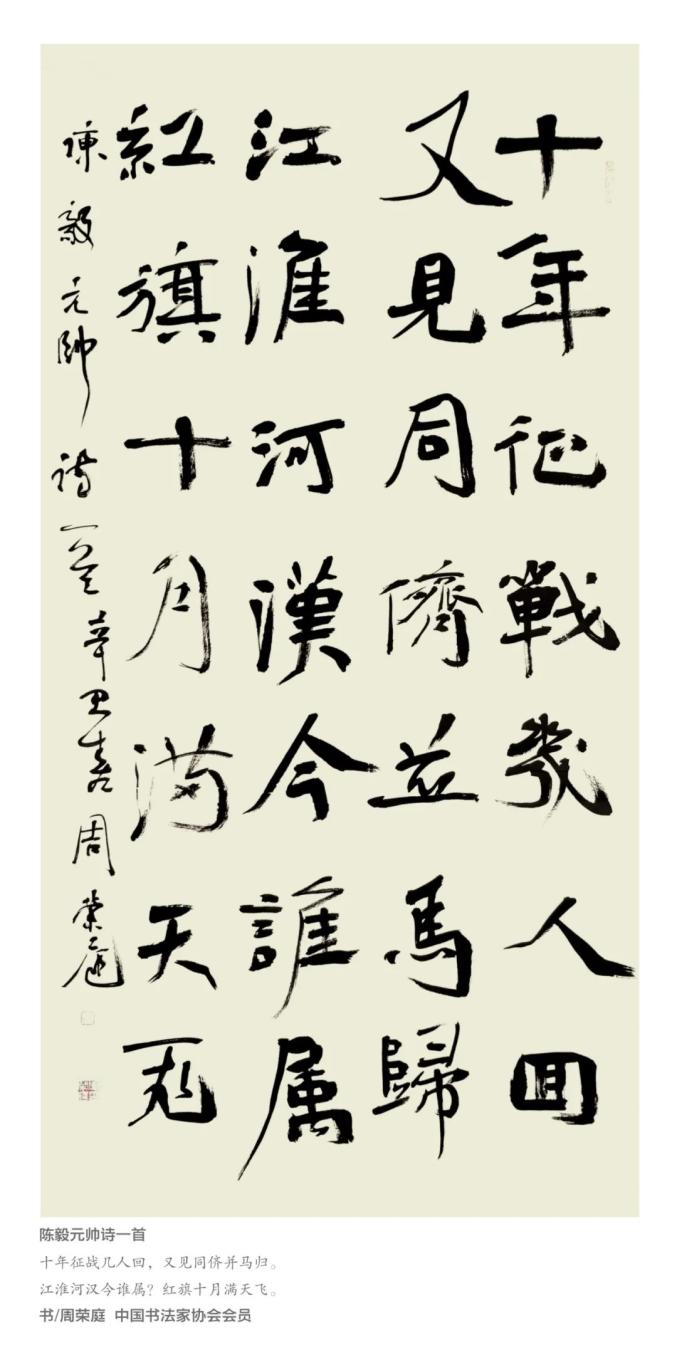 十年征戰幾人回
又見同儕並馬歸
江淮河漢今誰属
紅旗十月满天飛
陳毅元帥詩一首辛丑春周榮庭
陈毅元帅诗一首
十年征战几人回，又见同侪并马归。
江淮河汉今谁属？红旗十月满天飞。
书/周荣庭 中国书法家协会会员